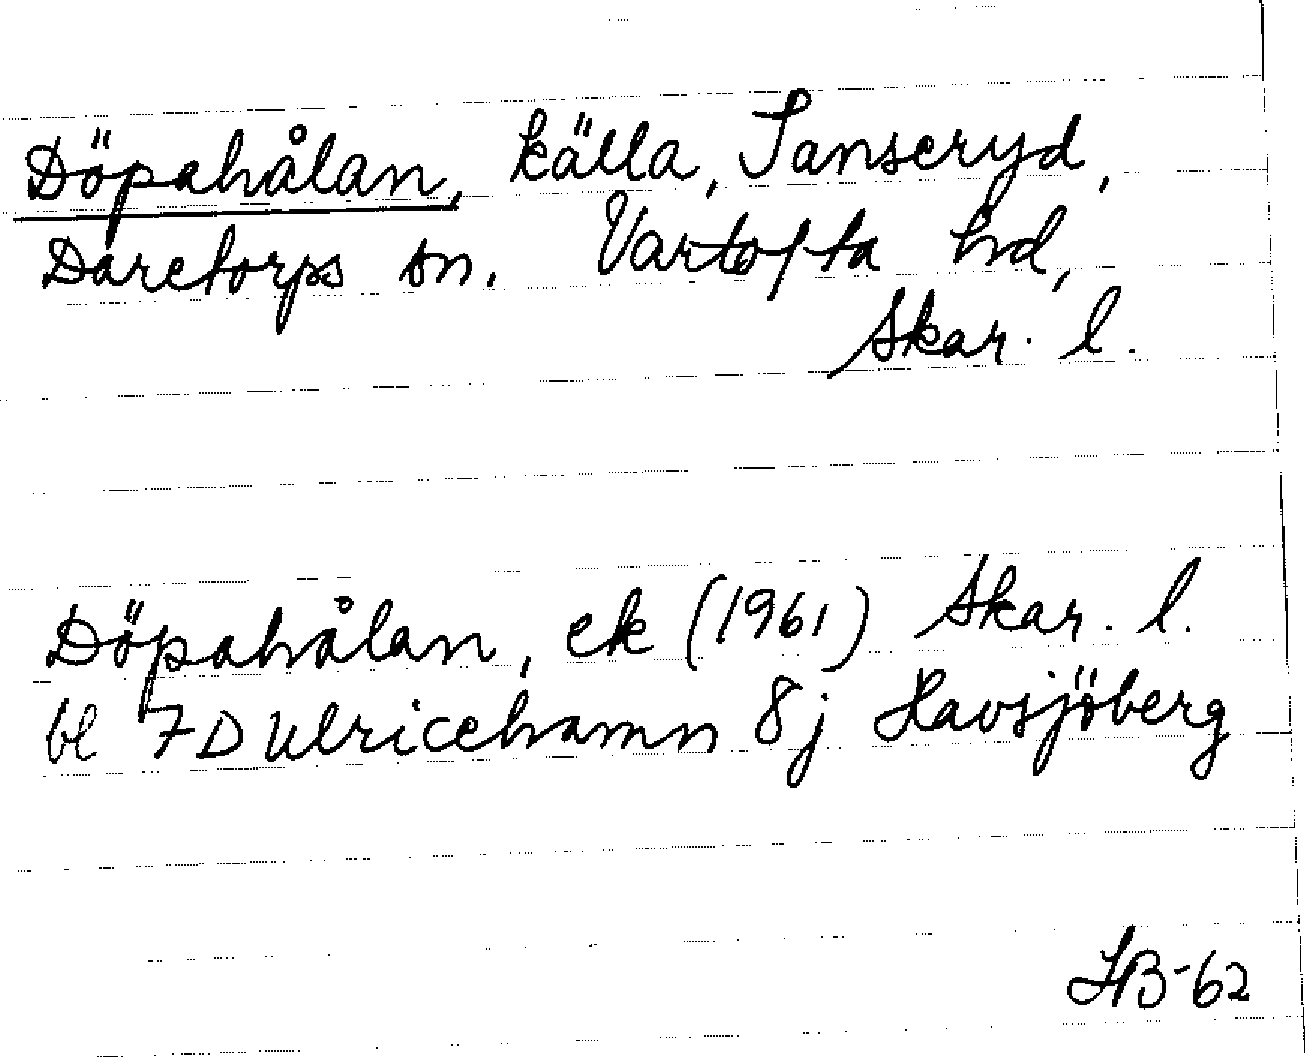 Döpahålan, källa, Sanseryd,
Daretorps sn. Vartofta hd,
Skar. l.
Döpahålan, ek (1961) Skar. l.
bl 7D Ulricehamn 8j Havsjöberg
HB-62